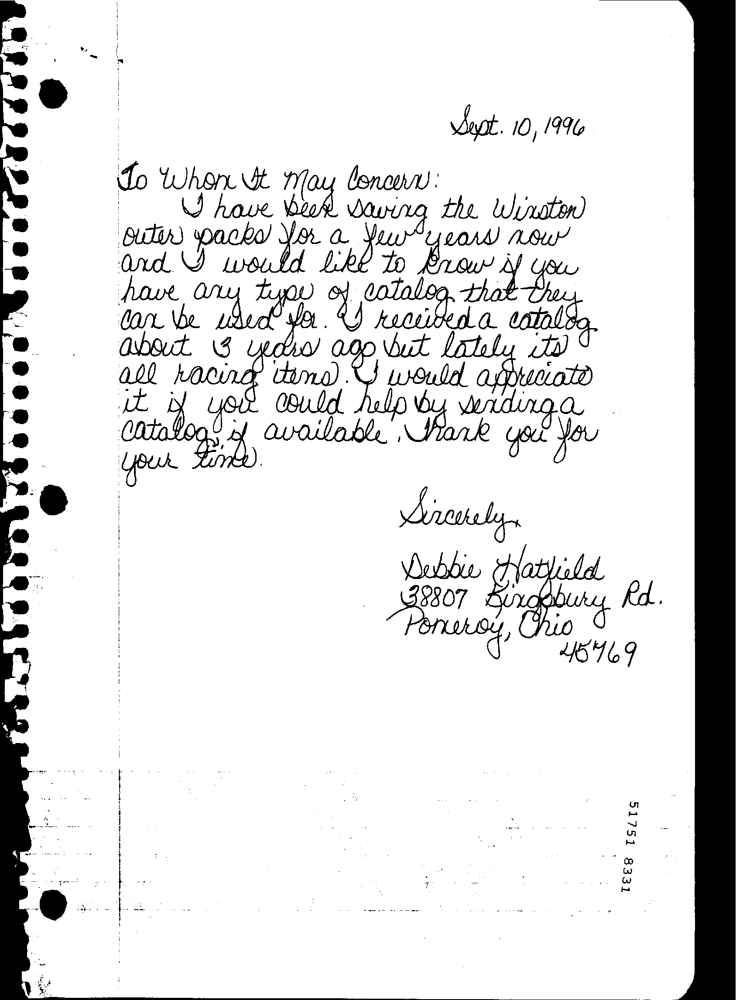 Sept. 10, 1996
To Whom It May Concern:
I have been saving the Winston
outer packs for a few years now
and I would like to know if you
have any type of catalog that they
can be used for. I received a catalog
about 3 years ago but lately its
all racing items. I would appreciate
it if you could help by sending a
catalog, if available. Thank you for
your time.
Sincerely,
Debbie Hatfield
38807 Kingsbury Rd.
Pomeroy, Ohio
45769
51751 8331